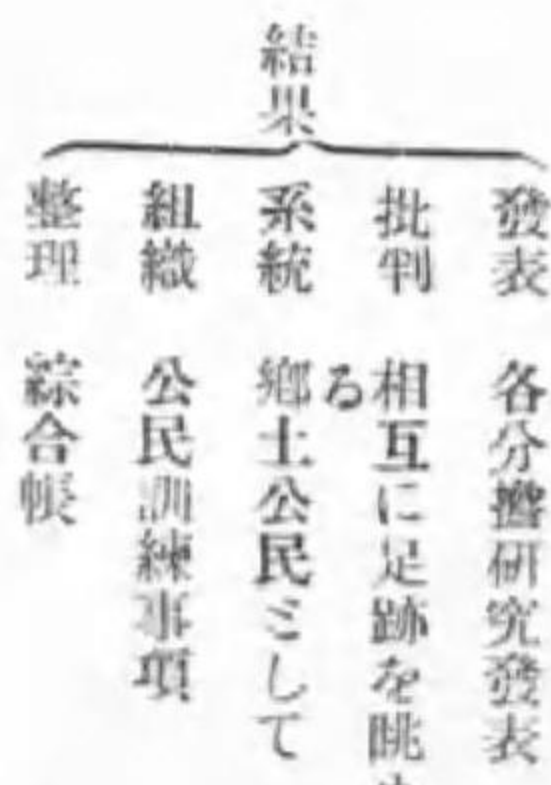 結果
發表 各分擔研究發表
批判 相互に足跡を眺め
る
系統 鄕土公民ミして
組織 公民訓練事項
整理 綜合帳